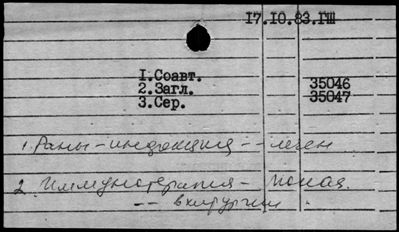 17.10.83.ГШ
1.Соавт.
2.Загл. 35046
3.Сер. 35047
1. Раны - инфекция -- лечен
2. Иммунотерапия -
-- в хирургии